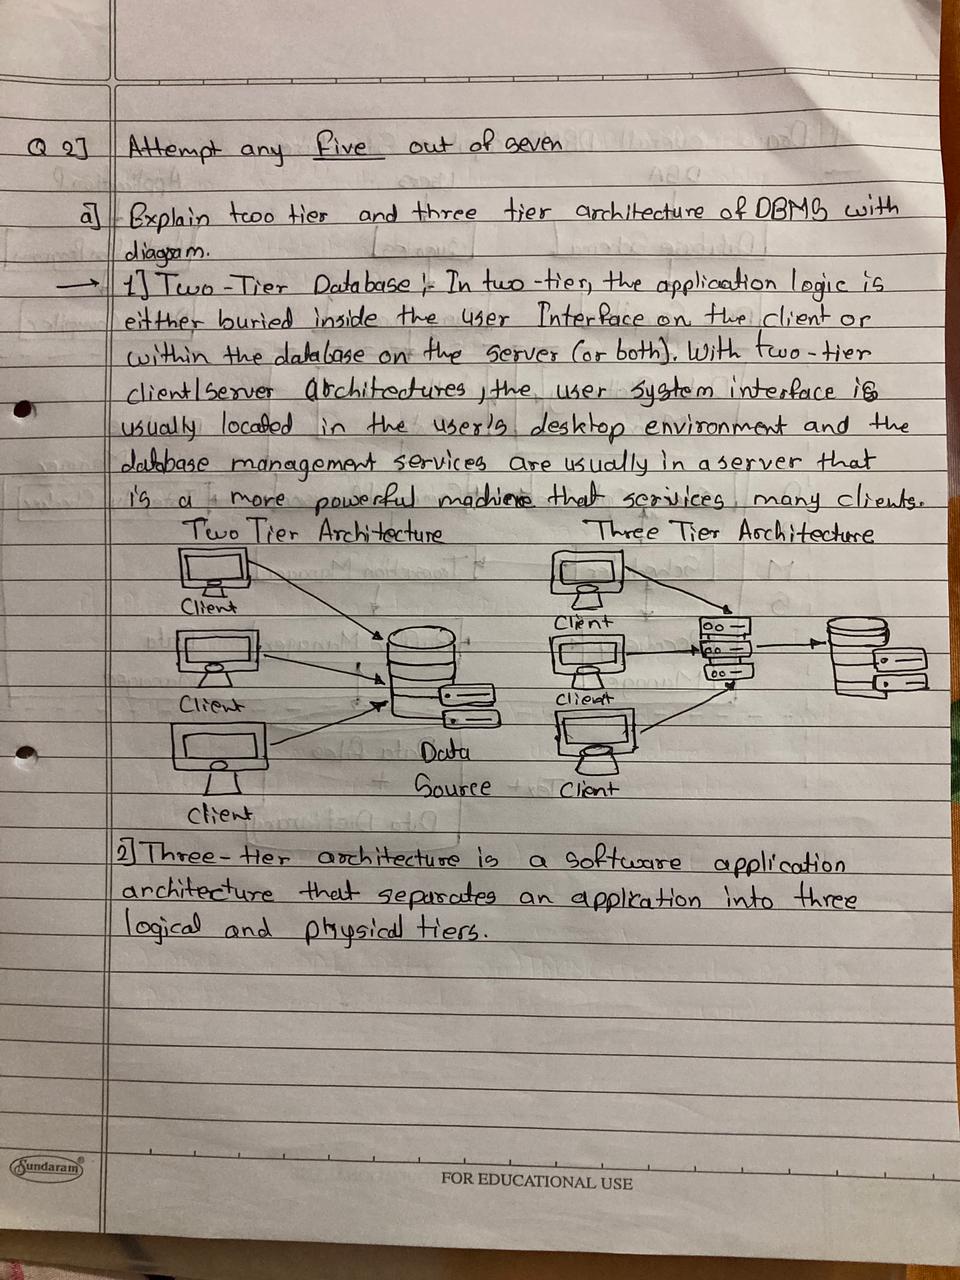 Q 2] Attempt any five out of seven
a] Explain two tier and three tier architecture of DBMS with
diagram.
→ 1] Two-Tier Database :- In two-tier, the application logic is
eitther buried inside the user Interface on the client or
within the database on the server (or both). With two-tier
client/server architectures, the user system interface is
usually located in the user's desktop environment and the
database management services are usually in a server that
is a more powerful machine that services many clients.
Two Tier Architecture Three Tier Architecture
Client
Client
Client
Data
Source
Client
Client
Client
2] Three-tier architecture is a software application
architecture that separates an application into three
logical and physical tiers.
Sundaram
FOR EDUCATIONAL USE